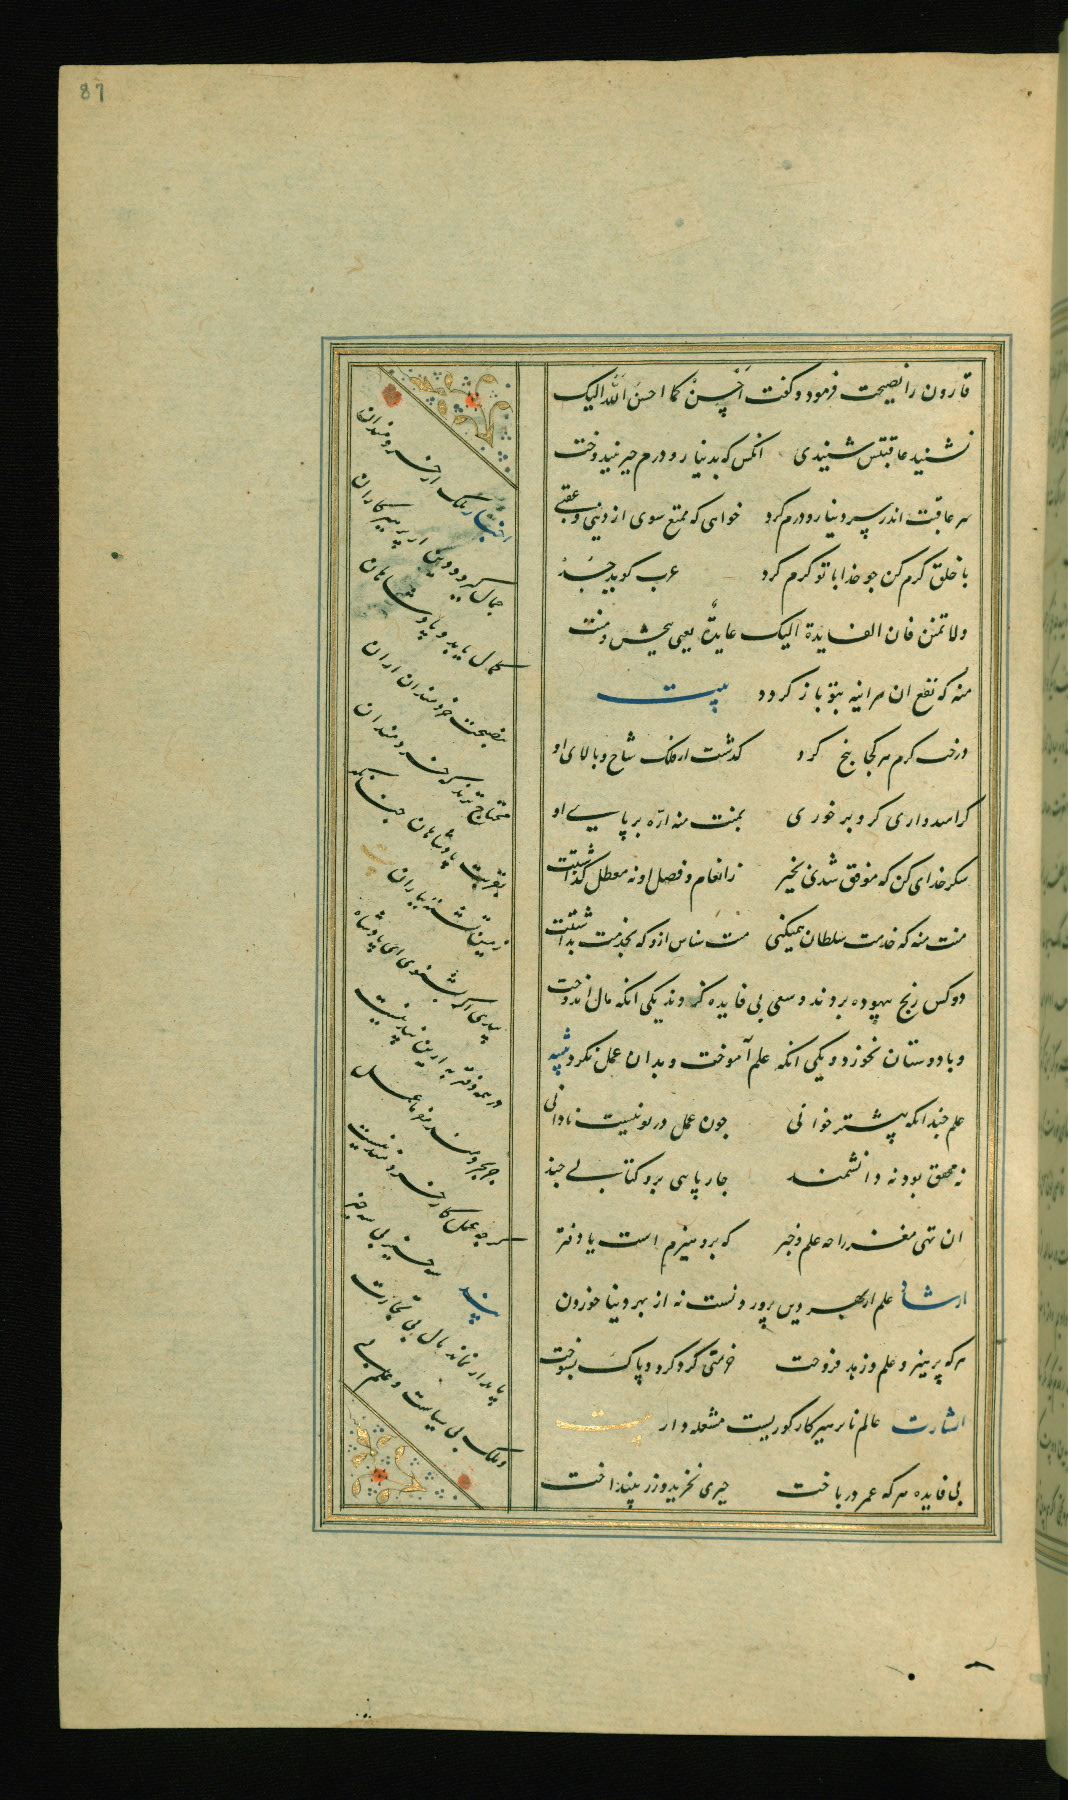 87
قارون را نصیحت فرمود و کفت اَحْسِنْ کما احسنَ اللّٰه الیک
نشنید عاقبتش شنیدی انکس که بدنیار و درم خیر نیندوخت
سر عاقبت اندر سر دینار و درم کرد خواهی که ممتع شوی از دنیی و عقبی
با خلق کرم کن چو خدا با تو کرم کرد عرب کوید جُدْ
ولا تمنن فان الفایدة الیک عایدةٌ یعنی ببخش و منت
منه که نفع ان هراینه بتو باز کردد بیت
درخت کرم هر کجا بیخ کرد کدشت از فلک شاخ و بالای او
کر امیدواری کزو بر خوری بمنت منه ارّه بر پای او
شکر خدای کن که موفق شدی بخیر ز انعام و فضل او نه معطل کذاشتت
منت منه که خدمت سلطان همیکنی منت شناس ازو که بخدمت بداشتت
دو کس رنج بیهوده بردند و سعی بی فایده کردند یکی انکه مال اندوخت
و با دوستان نخورد و یکی انکه علم آموخت و بدان عمل نکرد
علم چندانکه بیشتر خوانی چون عمل در تو نیست نادانی
نه محقق بود نه دانشمند چارپایی برو کتابی چند
ان تهی مغز را چه علم و خبر که برو هیزم است یا دفتر
ارشاد علم از بهر دین پروردنست نه از بهر دنیا خوردن
هر که پرهیز و علم و زهد فروخت خرمنی کرد کرد و پاک بسوخت
اشارت عالم ناپرهیز کار کوریست مشعله دار بیت
بی فایده هر که عمر در باخت چیزی نخرید و زر بینداخت
ملک از خردمندان
جمال کیرد و دین از پرهیزکاران
کمال یابد و پادشاهان
بنصیحت خردمندان ازان
محتاج ترند که خردمندان
بقربت پادشاهان
پندی اکر بشنوی ای پادشاه
در همه دفتر به ازین پند نیست
جز بخردمند مفرما عمل
کرچه عمل کار خردمند نیست
پند سه چیز بی سه چیز
پایدار نماند مال بی تجارت
و علم بی
و ملک بی سیاست